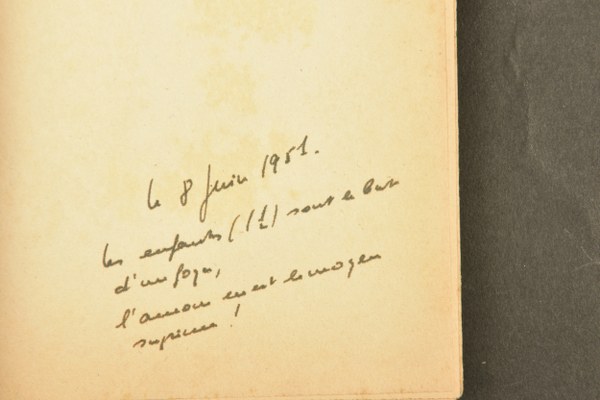 le 8 Juin 1951.
Les enfants (1 1/2) sont le but
d'un foyer,
l'amour en est le moyen
suprême !